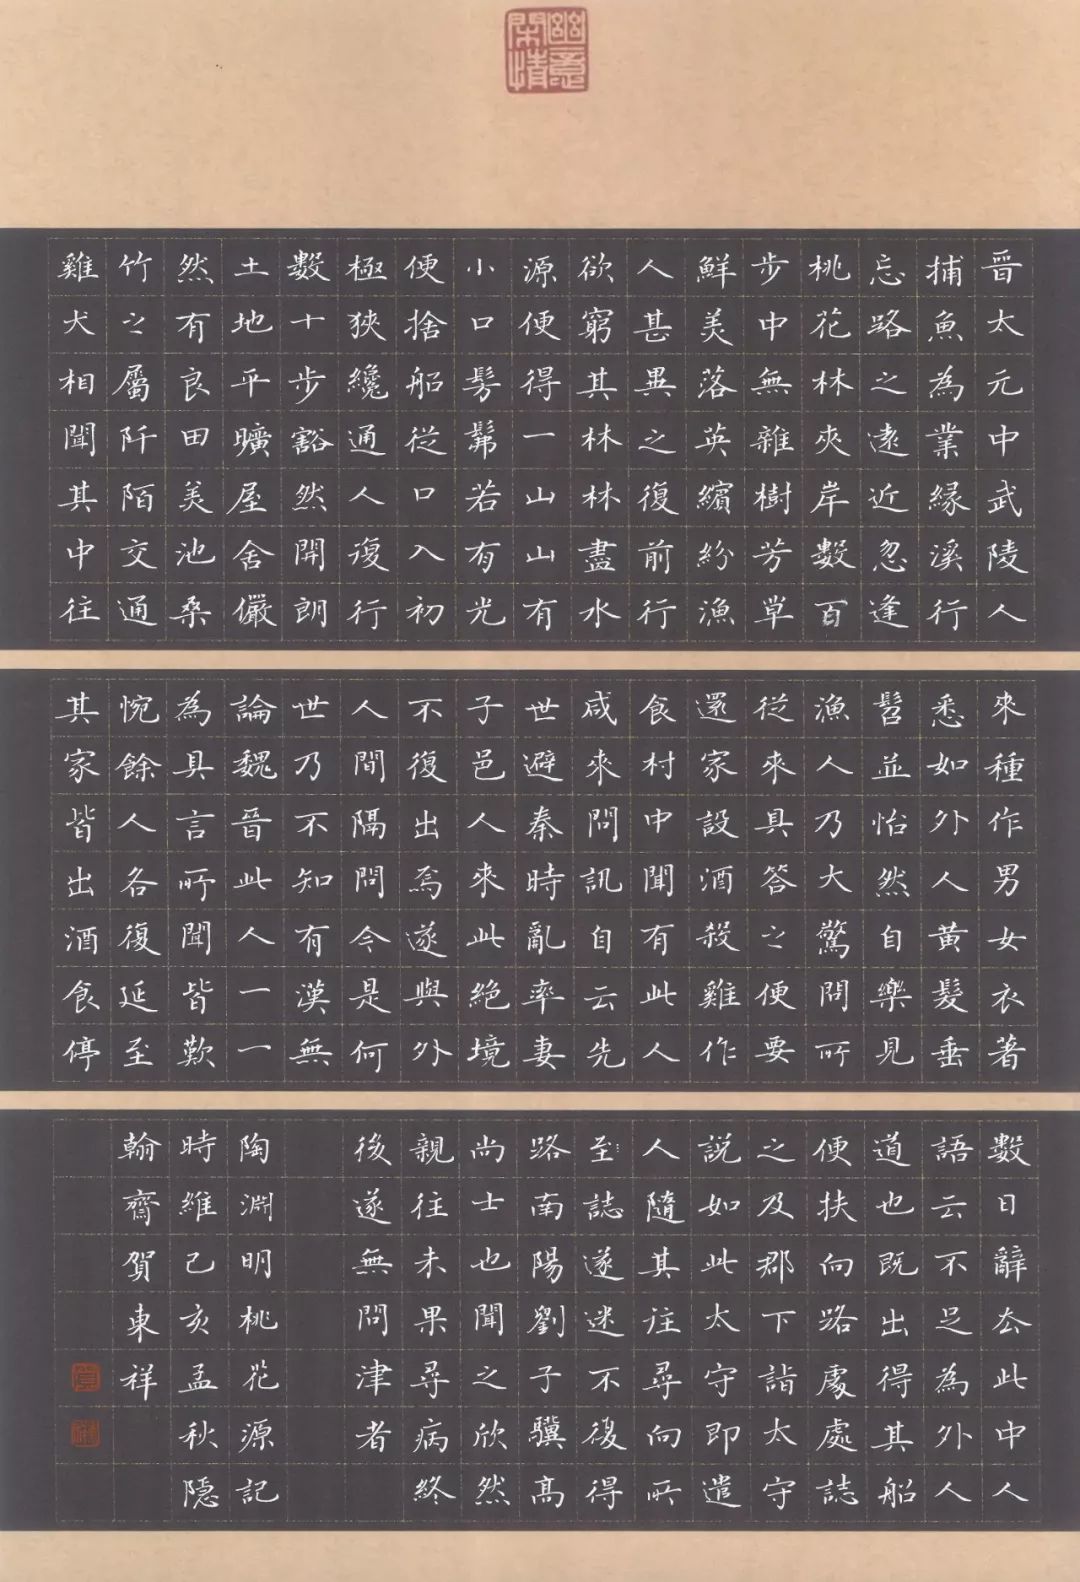 幽意閑情
晉太元中武陵人
捕魚為業緣溪行
忘路之遠近忽逢
桃花林夾岸數百
步中無雜樹芳草
鮮美落英繽紛漁
人甚異之復前行
欲窮其林林盡水
源便得一山山有
小口髣髴若有光
便捨船從口入初
極狹纔通人復行
數十步豁然開朗
土地平曠屋舍儼
然有良田美池桑
竹之屬阡陌交通
雞犬相聞其中往
來種作男女衣著
悉如外人黃髮垂
髫並怡然自樂見
漁人乃大驚問所
從來具答之便要
還家設酒殺雞作
食村中聞有此人
咸來問訊自云先
世避秦時亂率妻
子邑人來此絕境
不復出焉遂與外
人間隔問今是何
世乃不知有漢無
論魏晉此人一一
為具言所聞皆歎
惋餘人各復延至
其家皆出酒食停
數日辭去此中人
語云不足為外人
道也既出得其船
便扶向路處處誌
之及郡下詣太守
說如此太守即遣
人隨其往尋向所
至誌遂迷不復得
路南陽劉子驥高
尚士也聞之欣然
親往未果尋病終
後遂無問津者
陶淵明桃花源記
時維己亥孟秋隱
翰齋賀東祥